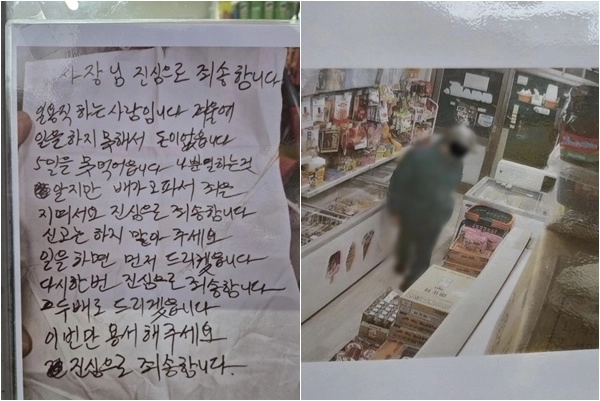 사장님 진심으로 죄송합니다
일용직 하는 사람입니다 겨울에
일을 하지 못해서 돈이 없읍니다
5일을 못먹어읍니다 나쁜일하는것
알지만 배가고파서 죄을
지며서요 진심으로 죄송합니다
신고는 하지 말아 주세요
일을 하면 먼저 드리겠읍니다
다시한번 진심으로 죄송합니다
두배로 드리겠읍니다
이번만 용서해주세요
진심으로 죄송합니다.